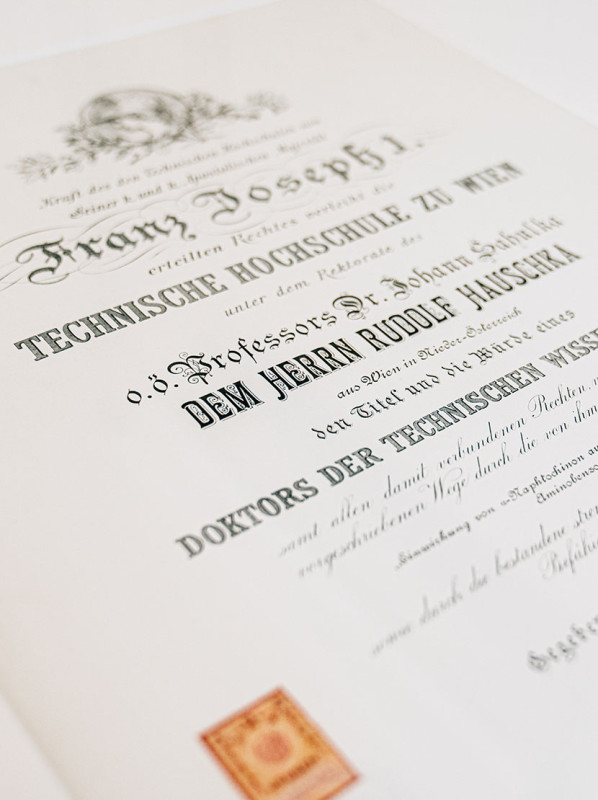 Kraft des der Technischen Hochschule von
Seiner k. und k. Apostolischen Majestät
Franz Joseph I.
erteilten Rechtes verleiht die
TECHNISCHE HOCHSCHULE ZU WIEN
unter dem Rektorate des
o.ö. Professors Dr. Johann Sahulka
DEM HERRN RUDOLF HAUSCHKA
aus Wien in Nieder-Österreich
den Titel und die Würde eines
DOKTORS DER TECHNISCHEN WISSE
samt allen damit verbundenen Rechten
vorgeschriebenen Wege durch die von ihm
Einwirkung von α-Naphtochinon au
Aminobenzo
sowie durch die bestandene stren
Befähi
Gegeben